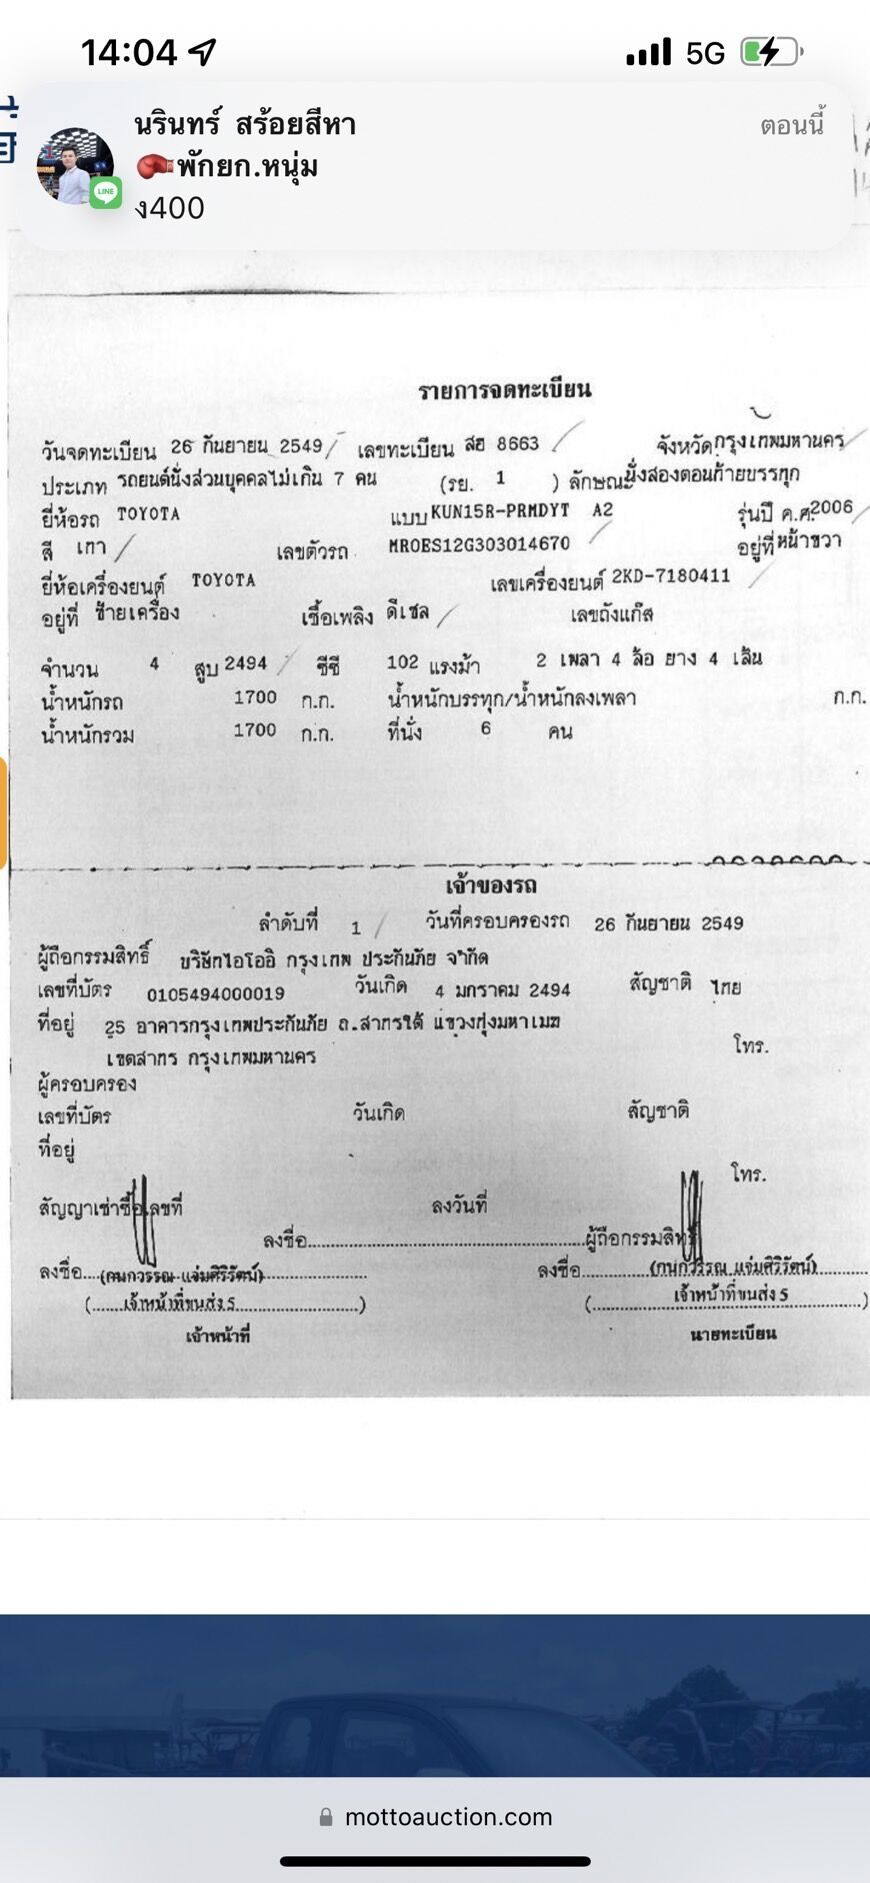 14:04
5G
นรินทร์ สร้อยสีหา
ตอนนี้
🥊พักยก.หนุ่ม
LINE
ง400
รายการจดทะเบียน
วันจดทะเบียน 26 กันยายน 2549 เลขทะเบียน สฮ 8663 จังหวัด กรุงเทพมหานคร
ประเภท รถยนต์นั่งส่วนบุคคลไม่เกิน 7 คน (รย. 1 ) ลักษณะ นั่งสองตอนท้ายบรรทุก
ยี่ห้อรถ TOYOTA แบบ KUN15R-PRMDYT A2 รุ่นปี ค.ศ. 2006
สี เทา เลขตัวรถ MROES12G303014670 อยู่ที่ หน้าขวา
ยี่ห้อเครื่องยนต์ TOYOTA เลขเครื่องยนต์ 2KD-7180411
อยู่ที่ ซ้ายเครื่อง เชื้อเพลิง ดีเซล เลขถังแก๊ส
จำนวน 4 สูบ 2494 ซีซี 102 แรงม้า 2 เพลา 4 ล้อ ยาง 4 เส้น
น้ำหนักรถ 1700 ก.ก. น้ำหนักบรรทุก/น้ำหนักลงเพลา ก.ก.
น้ำหนักรวม 1700 ก.ก. ที่นั่ง 6 คน
เจ้าของรถ
ลำดับที่ 1 วันที่ครอบครองรถ 26 กันยายน 2549
ผู้ถือกรรมสิทธิ์ บริษัทไอโออิ กรุงเทพ ประกันภัย จำกัด
เลขที่บัตร 0105494000019 วันเกิด 4 มกราคม 2494 สัญชาติ ไทย
ที่อยู่ 25 อาคารกรุงเทพประกันภัย ถ.สาทรใต้ แขวงทุ่งมหาเมฆ
เขตสาทร กรุงเทพมหานคร โทร.
ผู้ครอบครอง
เลขที่บัตร วันเกิด สัญชาติ
ที่อยู่
โทร.
สัญญาเช่าซื้อเลขที่ ลงวันที่
ลงชื่อ ผู้ถือกรรมสิทธิ์
ลงชื่อ (กนกวรรณ แจ่มศิริรัตน์) ลงชื่อ (กนกวรรณ แจ่มศิริรัตน์)
( เจ้าหน้าที่ขนส่ง 5 ) ( เจ้าหน้าที่ขนส่ง 5 )
เจ้าหน้าที่ นายทะเบียน
mottoauction.com